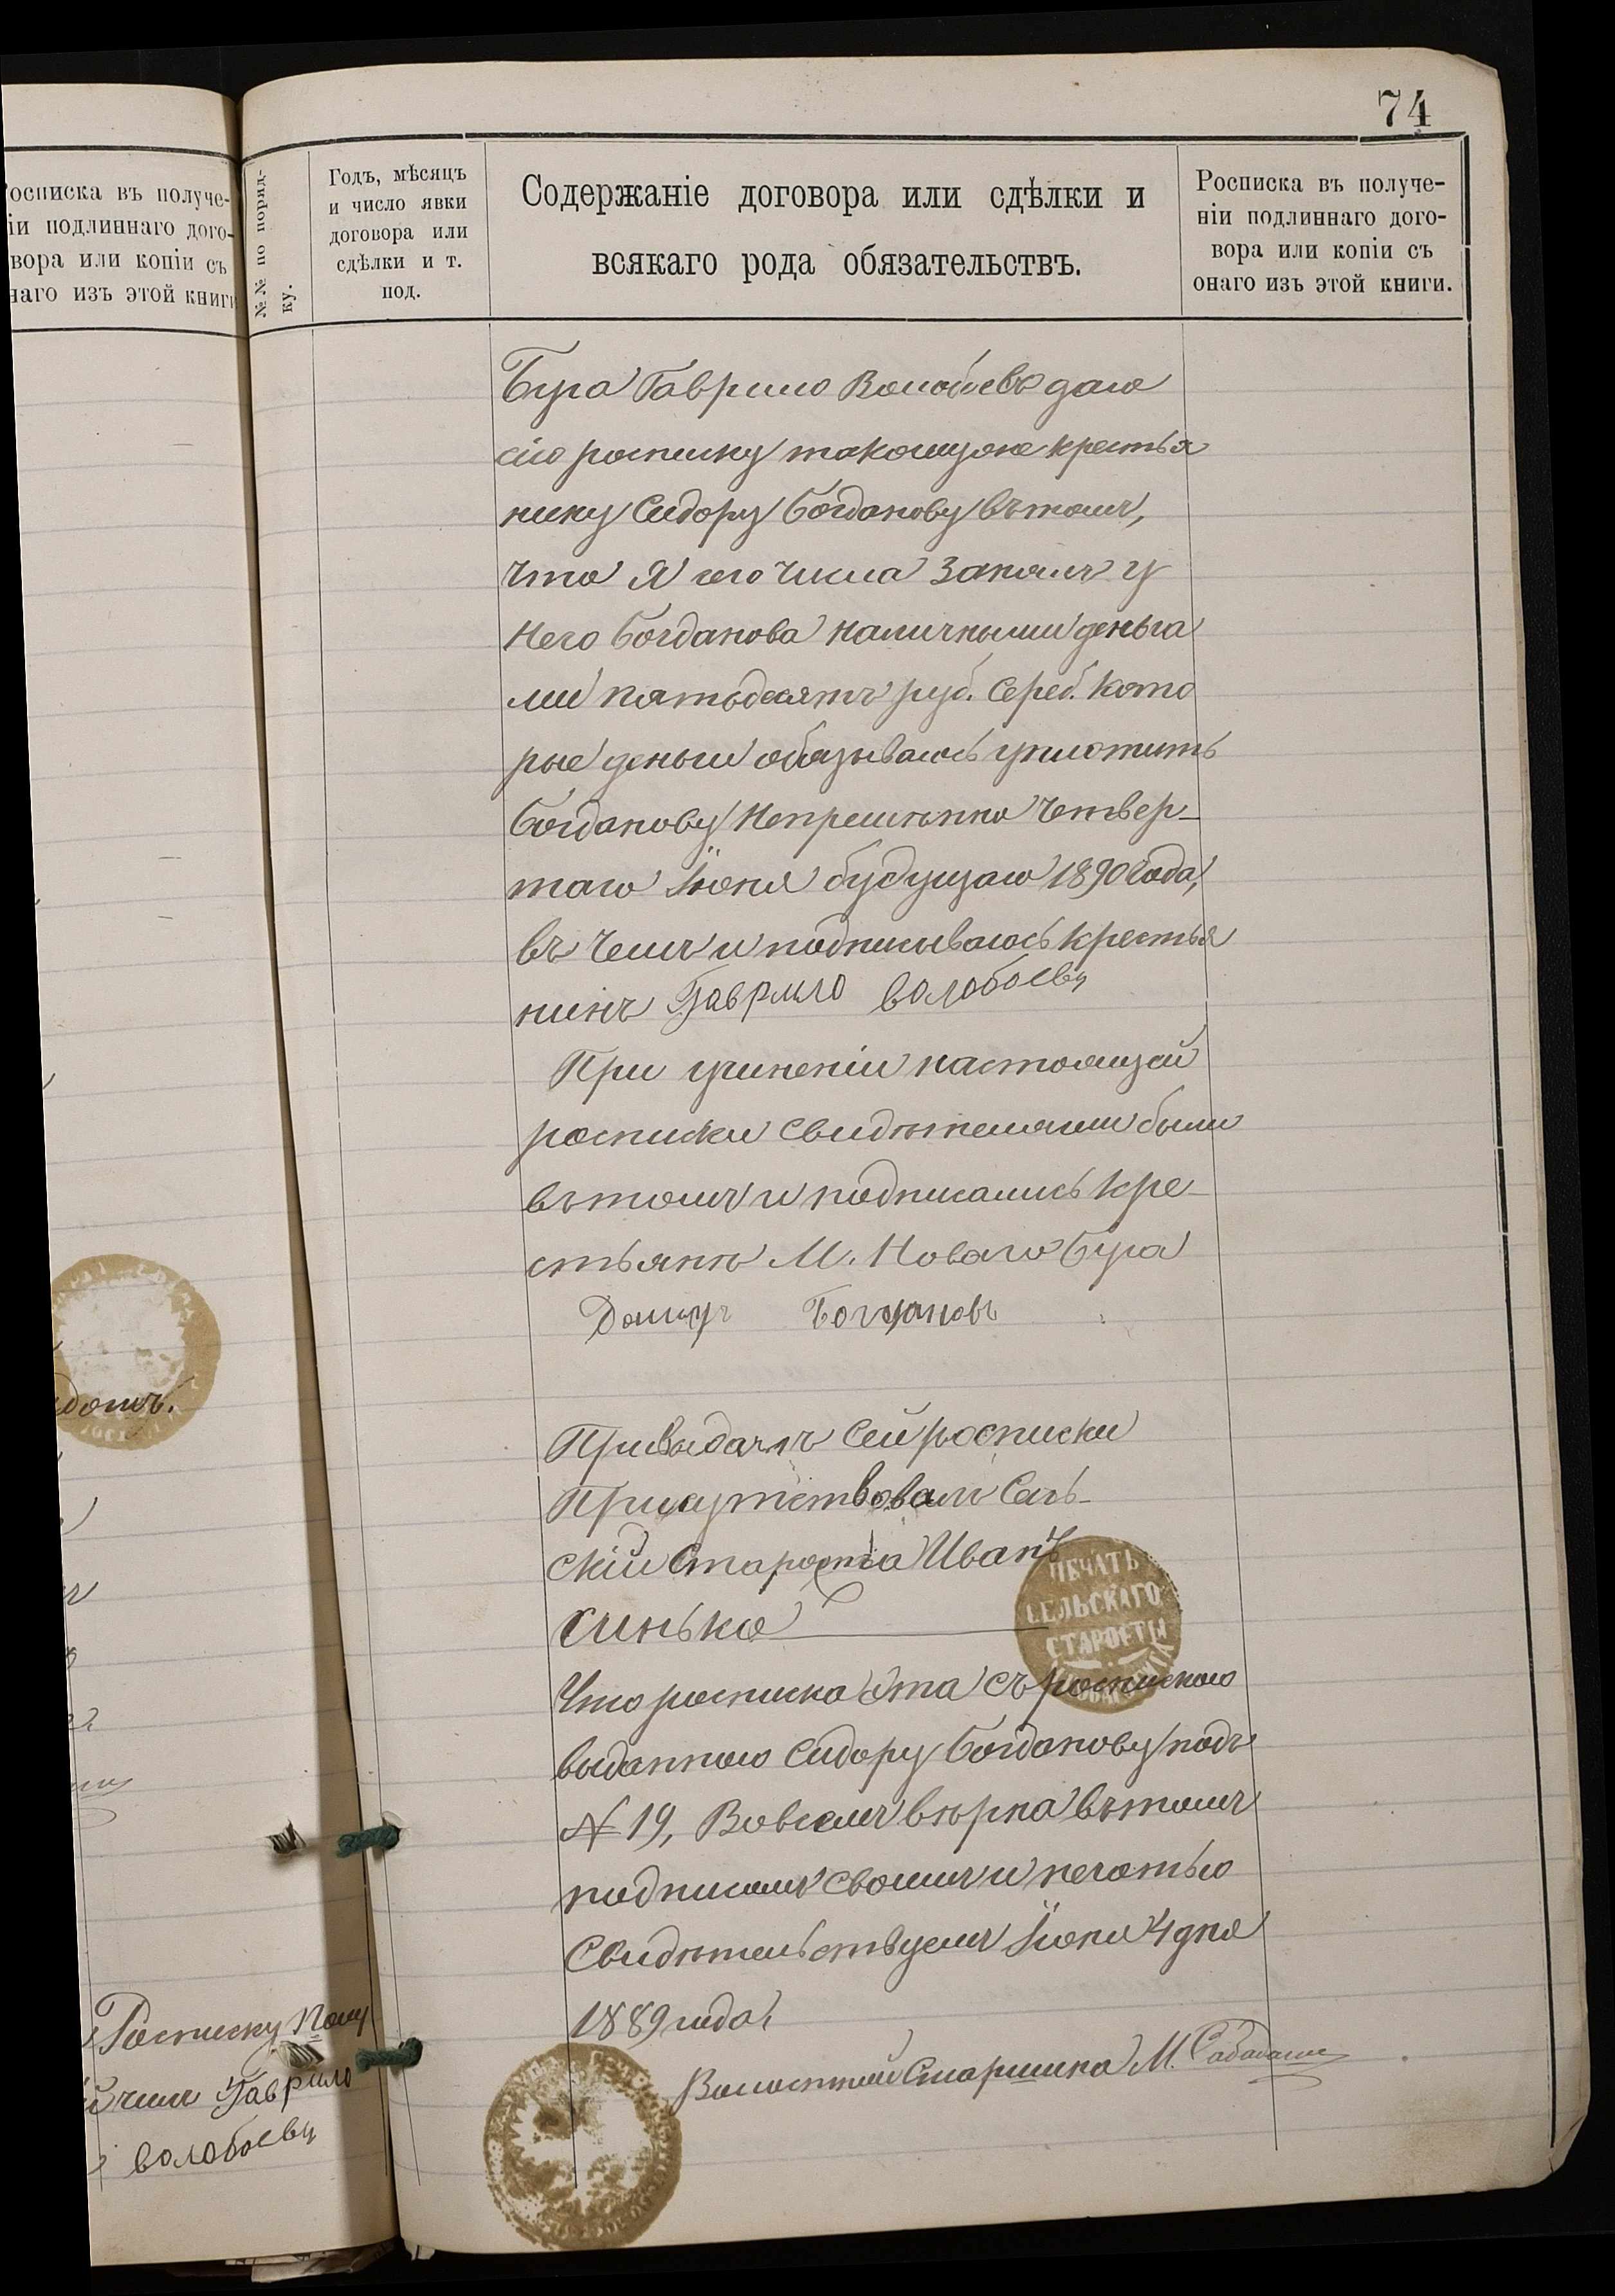 74
Росписка въ получе-
ніи подлиннаго дого-
вора или копіи съ
онаго изъ этой книги
№№ по поряд-
ку.
Годъ, мѣсяцъ
и число явки
договора или
сдѣлки и т.
под.
Содержаніе договора или сдѣлки и
всякаго рода обязательствъ.
Росписка въ получе-
ніи подлиннаго дого-
вора или копіи съ
онаго изъ этой книги.
Буга Гаврило Волобоевъ даю
сію росписку такомуже крестья
нину Сидору Богданову въ томъ,
что я сего числа занялъ у
Него Богданова наличными деньга
ми пятьдесятъ руб. Сереб. кото
рые деньги обязываюсь уплотить
Богданову Непремѣнно Четвер-
таго Іюня будущаго 1890 года,
въ чемъ и подписываюсь крестья
нинъ Гаврило Волобоевъ
При учиненіи настоящей
росписки свидѣтелями были
въ томъ и подписались кре-
стьяне М. Новаго Буга
Богдановъ
При выдачѣ сей росписки
Присутствовалъ Сель-
скій Староста Иванъ
Синько
ПЕЧАТЬ
СЕЛЬСКАГО
СТАРОСТЫ
Что росписка эта съ роспискою
выданною Сидору Богданову подъ
№ 19, Во всемъ вѣрна въ томъ
подписомъ своимъ и печатью
Свидѣтельствуемъ Іюня 4 дня
1889 года
Волостной Старшина М.
домъ.
Росписку полу
чилъ Гаврило
Волобоевъ